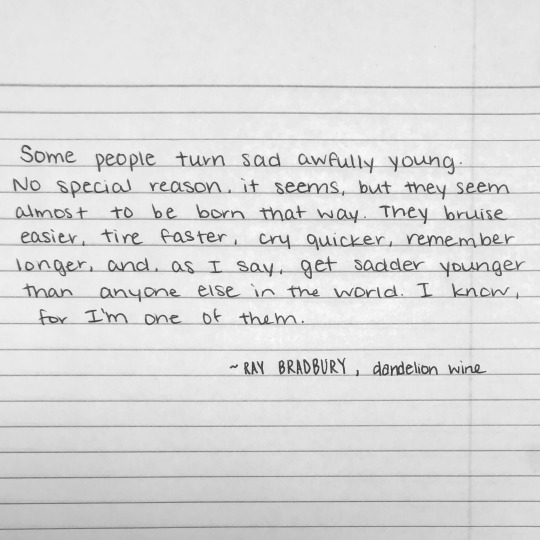 Some people turn sad awfully young.
No special reason, it seems, but they seem
almost to be born that way. They bruise
easier, tire faster, cry quicker, remember
longer, and, as I say, get sadder younger
than anyone else in the world. I know,
for I'm one of them.
~ RAY BRADBURY, dandelion wine